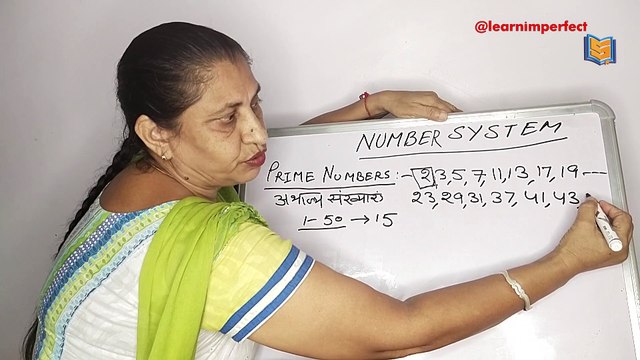 @learnimperfect
NUMBER SYSTEM
PRIME NUMBERS :- 2, 3, 5, 7, 11, 13, 17, 19 ----
अभाज्य संख्याएं 23, 29, 31, 37, 41, 43
1-50 → 15